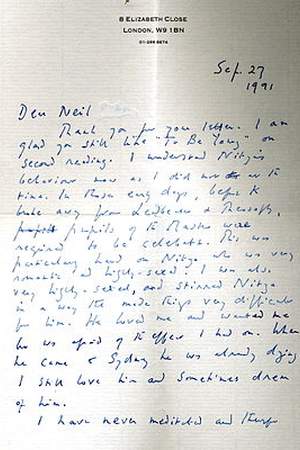 8 Elizabeth Close
London, W9 1BN
01-286 6674
Sep. 27
1991
Dear Neil
Thank you for your letter. I am
glad you still like "To Be Young" on
second reading. I understand Nitya's
behaviour now as I did not at the
time. In those early days, before K
broke away from Leadbeater & Theosophy,
pupils of the Master were
required to be celibate. This was
particularly hard on Nitya who was very
romantic and highly-sexed. I was also
very highly-sexed, and stirred Nitya
in a way that made things very difficult
for him. He loved me and wanted me
but was afraid of the effect I had on. When
he came to Sydney he was already dying
I still love him and sometimes dream
of him.
I have never meditated and